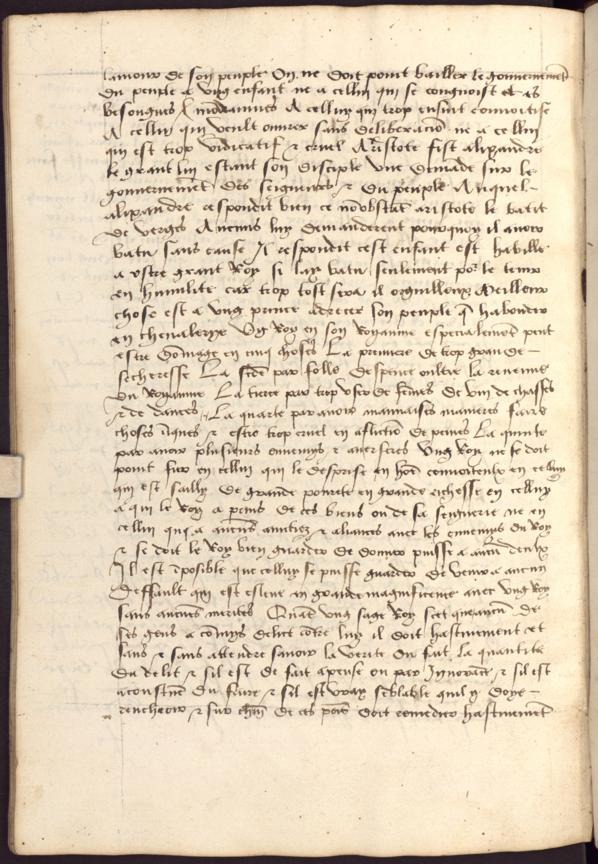 lamour de son peuple On ne doit point bailler le gouvernement
du peuple a ung enfant ne a celluy qui se congnoist es
besongnes mondaines A celluy qui trop ensuit convoitise
A celluy qui veult ouvrer sans deliberacion ne a celluy
qui est trop vindicatif & cruel Aristote fist alixandre
le grant luy estant son disciple une demande sur le
gouvernement des seigneurs & du peuple Auquel
alixandre respondit bien ce nonobstant aristote le batit
de verges Aucuns luy demanderent pourquoy il lavoit
batu sans cause Il respondit cest enfant est habille
a estre grant Roy si lay batu seulement pour le tenir
en humilite car trop tost sera il orguilleux Meilleur
chose est a ung prince adrecer son peuple que habonder
en chevalerie Ung Roy en son Royaume especialement peut
estre domage en cinq choses La premiere de trop grande
secheresse La seconde par folle despence oultre la revenue
du Royaume La tierce par trop user de femmes de vin de chasses
& de dances La quarte par avoir mauvaises manieres faire
choses iniques & estre trop cruel en affliction de peines La quinte
par avoir plusieurs ennemys & adverseres Ung Roy ne se doit
point fier en celluy qui le desprise en homme convoiteux en celluy
qui est sailly de grande povrete en grande richesse en celluy
a qui le Roy a prins de ces biens ou de sa seigneurie ne en
celluy qui a aucunes amitiez & aliances avec les ennemys du Roy
& se doit le Roy bien guarder de donner puissance a aucun deulx
Il est impossible que celluy se puisse guarder de venir a aucun
deffault qui est esleve en grande magnificence avec ung Roy
sans aucuns merites Quant ung sage Roy scet que aucun de
ses gens a commis delict contre luy il doit hastivement et
sans & sans attendre savoir la verite du fait la quantite
du delit & sil est de fait apense ou par Ignorance & sil est
acoustume du faire & sil est vray semblable quil y doye
rencheoir & sur chascun de ces poins doit remedier hastivement